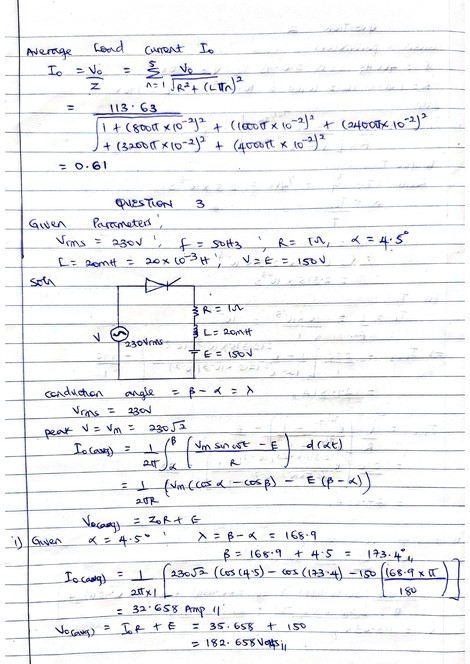 Average Load current Io
Io = Vo/Z = 5 Σ n=1 Vo/√R² + (Lπn)²
= 113.63
√1 + (800π × 10⁻²)² + (1600π × 10⁻²)² + (2400π × 10⁻²)²
+ (3200π × 10⁻²)² + (4000π × 10⁻²)²
= 0.61
QUESTION 3
Given Parameters;
Vrms = 230V ; f = 50Hz ; R = 1Ω, α = 4.5°
L = 20mH = 20 × 10⁻³H ; V = E = 150V
soln
R = 1Ω
L = 20mH
V 230Vrms
E = 150V
conduction angle = β - α = λ
Vrms = 230V
peak V = Vm = 230√2
Io(avg) = 1/2π ∫α^β (Vm sin ωt - E / R) d(αt)
= 1/2πR (Vm (cos α - cos β) - E (β - α))
Vo(avg) = IoR + E
i) Given α = 4.5° ; λ = β - α = 168.9
β = 168.9 + 4.5 = 173.4°
Io(avg) = 1/2π×1 [230√2 (cos(4.5) - cos(173.4) - 150 (168.9 × π / 180)]
= 32.658 Amp
Vo(avg) = IoR + E = 35.658 + 150
= 182.658 Volts